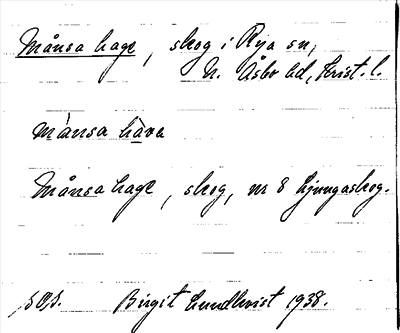 Månsa hage, skog i Rya sn,
N. Åsbo hd, Krist. l.
månsa hava
Månsa hage, skog, nr 8 Ljungaskog.
Birgit Lundkvist 1938.